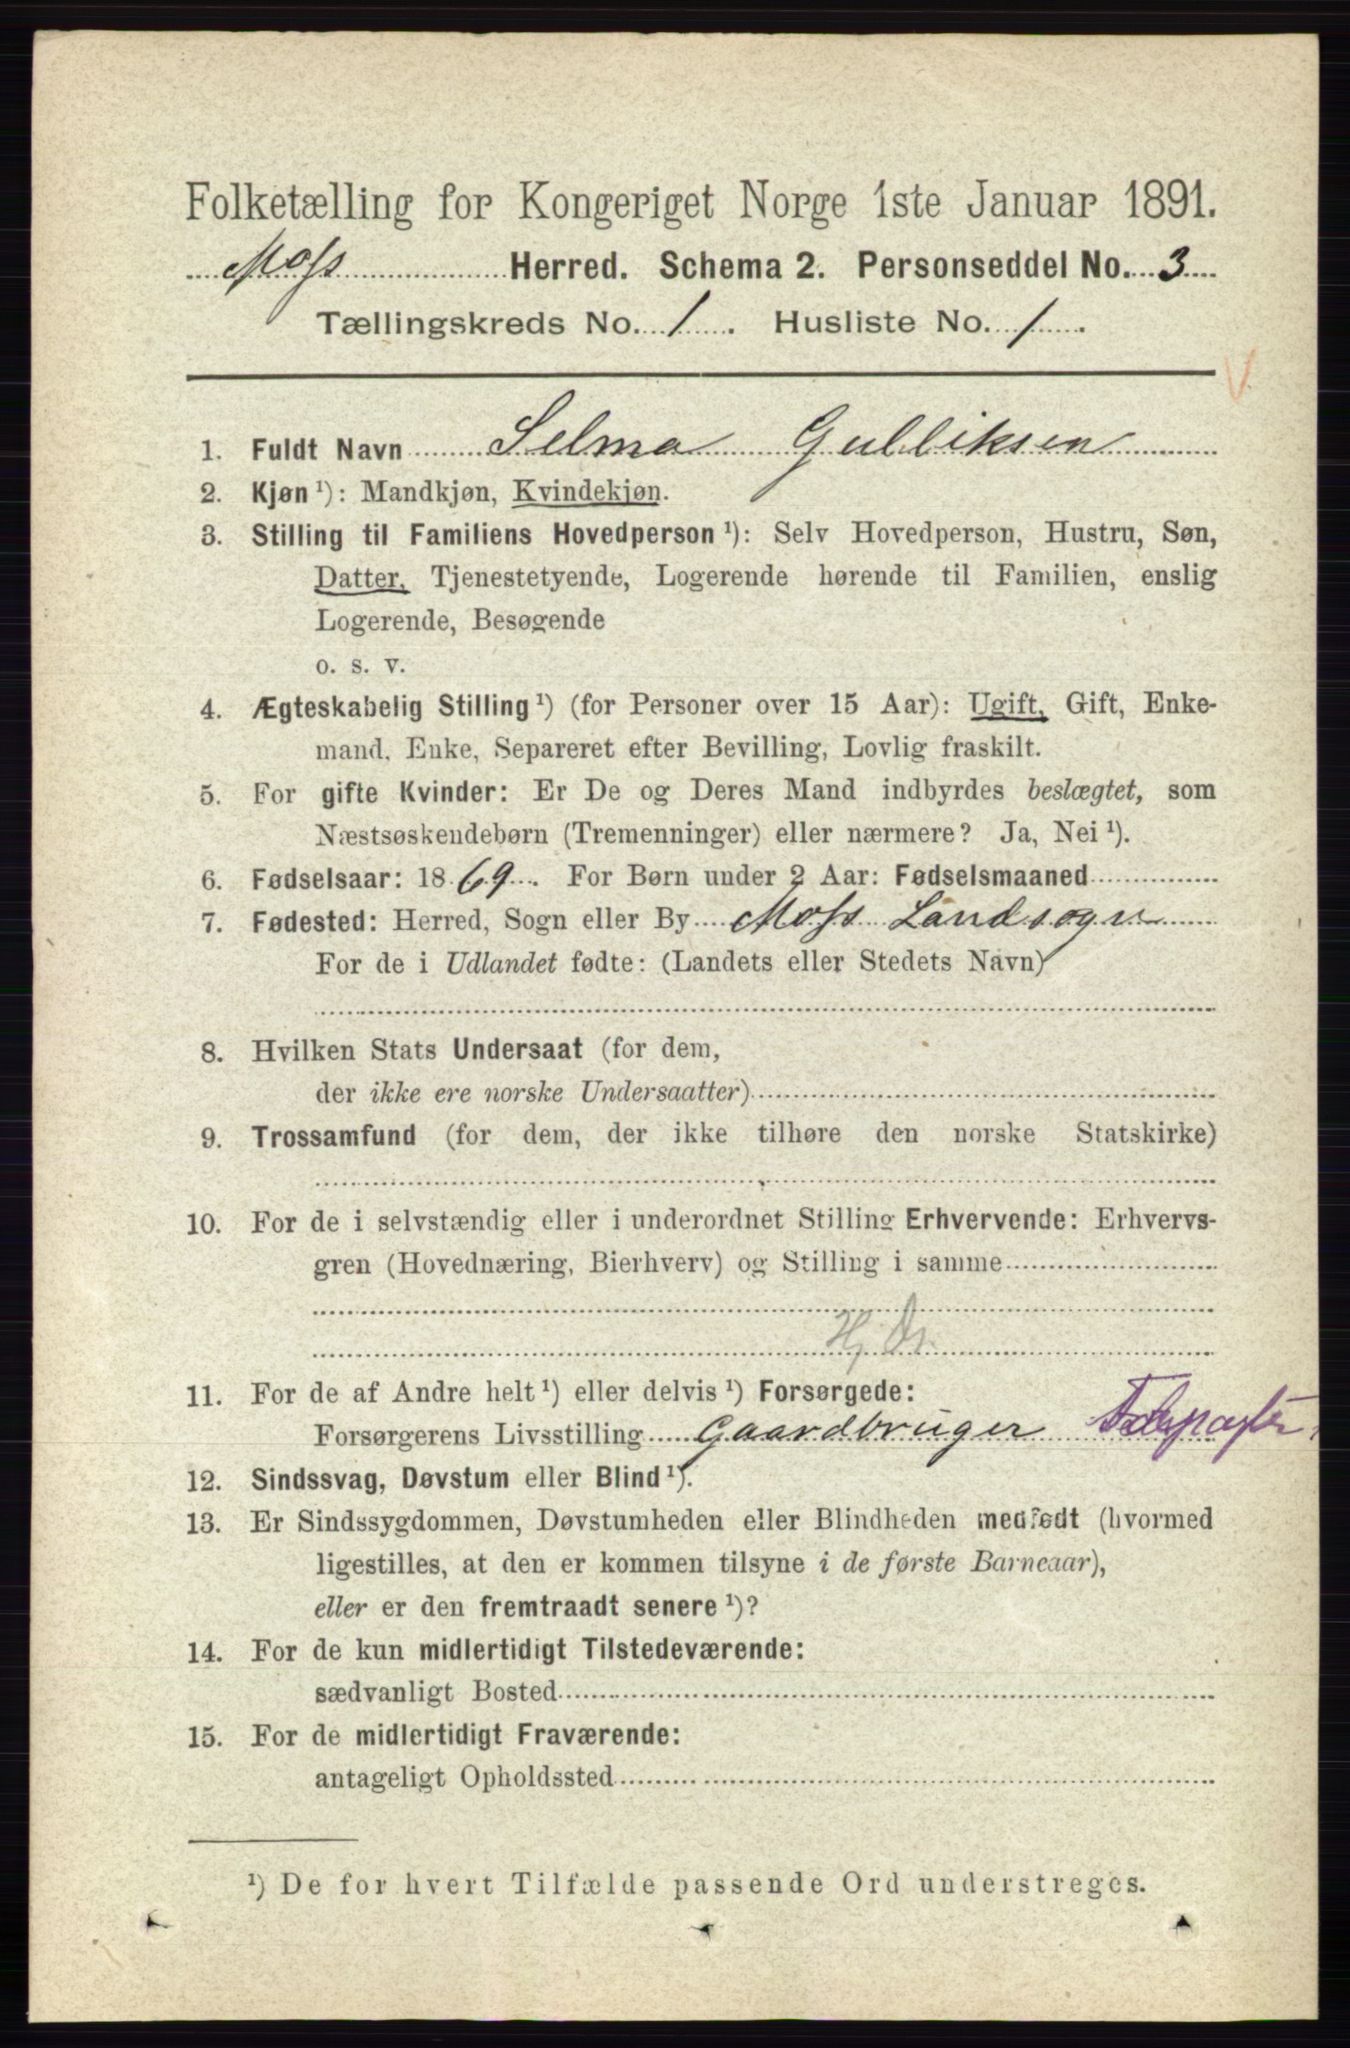 Folketælling for Kongeriget Norge 1ste Januar 1891.
Moss Herred. Schema 2. Personseddel No. 3
Tællingskreds No. 1. Husliste No. 1.
1. Fuldt Navn Selma Gulliksen
2. Kjøn ¹): Mandkjøn, Kvindekjøn.
3. Stilling til Familiens Hovedperson ¹): Selv Hovedperson, Hustru, Søn,
Datter, Tjenestetyende, Logerende hørende til Familien, enslig
Logerende, Besøgende
o. s. v.
4. Ægteskabelig Stilling ¹) (for Personer over 15 Aar): Ugift, Gift, Enke-
mand, Enke, Separeret efter Bevilling, Lovlig fraskilt.
5. For gifte Kvinder: Er De og Deres Mand indbyrdes beslægtet, som
Næstsøskendebørn (Tremenninger) eller nærmere? Ja, Nei ¹).
6. Fødselsaar: 1869. For Børn under 2 Aar: Fødselsmaaned
7. Fødested: Herred, Sogn eller By Moss Landsogn
For de i Udlandet fødte: (Landets eller Stedets Navn)
8. Hvilken Stats Undersaat (for dem,
der ikke ere norske Undersaatter)
9. Trossamfund (for dem, der ikke tilhøre den norske Statskirke)
10. For de i selvstændig eller i underordnet Stilling Erhvervende: Erhvervs-
gren (Hovednæring, Bierhverv) og Stilling i samme
Hj. Dr.
11. For de af Andre helt ¹) eller delvis ¹) Forsørgede:
Forsørgerens Livsstilling Gaardbruger
12. Sindssvag, Døvstum eller Blind ¹).
13. Er Sindssygdommen, Døvstumheden eller Blindheden medfødt (hvormed
ligestilles, at den er kommen tilsyne i de første Barneaar),
eller er den fremtraadt senere ¹)?
14. For de kun midlertidigt Tilstedeværende:
sædvanligt Bosted
15. For de midlertidigt Fraværende:
antageligt Opholdssted
¹) De for hvert Tilfælde passende Ord understreges.